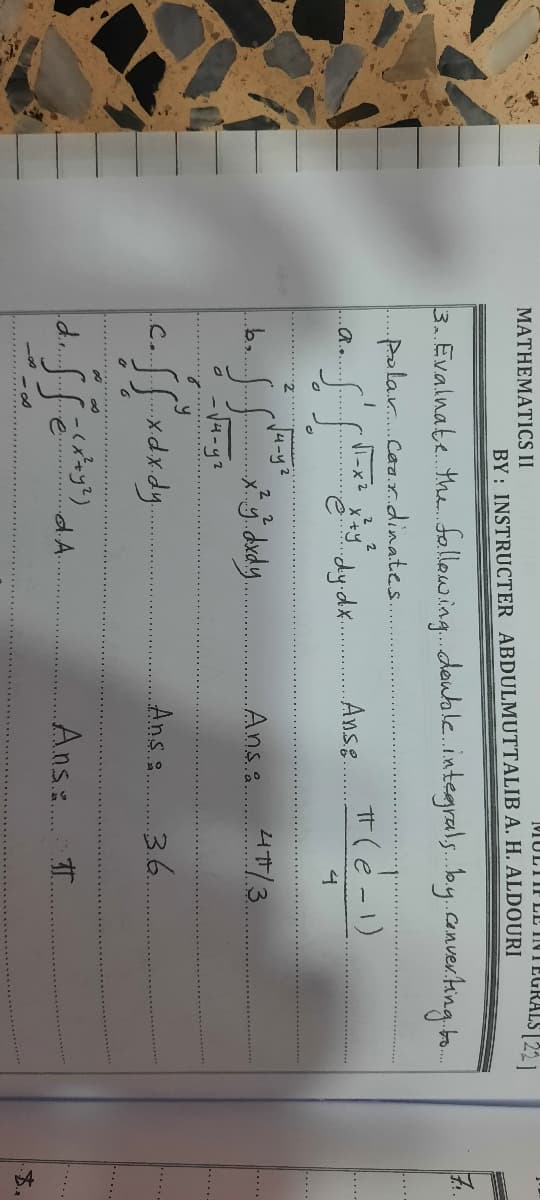 MULTIPLE INTEGRALS [22]
MATHEMATICS II
BY : INSTRUCTER ABDULMUTTALIB A. H. ALDOURI
3. Evaluate the following double integrals by converting to
Polar coordinates
a. ∫₀¹ ∫₀^√(1-x²) e^(x²+y²) dy dx Ans: π(e¹-1)/4
b. ∫₀² ∫_(-√(4-y²))^√(4-y²) x² y² dx dy Ans: 4π/3
c. ∫₀⁶ ∫₀^y x dx dy Ans: 36
d. ∫_(-∞)^∞ ∫_(-∞)^∞ e^(-(x²+y²)) dA Ans: π
7.
8.